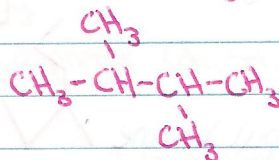 CH₃
CH₃-CH-CH-CH₃
CH₃